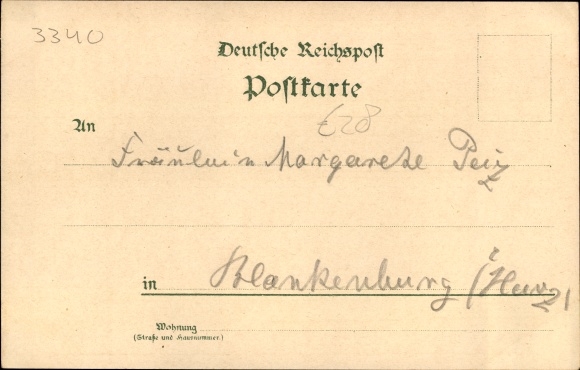 3340
Deutsche Reichspost
Postkarte
€28
An
Fräulein Margarete Peitz
in Blankenburg (Harz)
Wohnung
(Straße und Hausnummer)